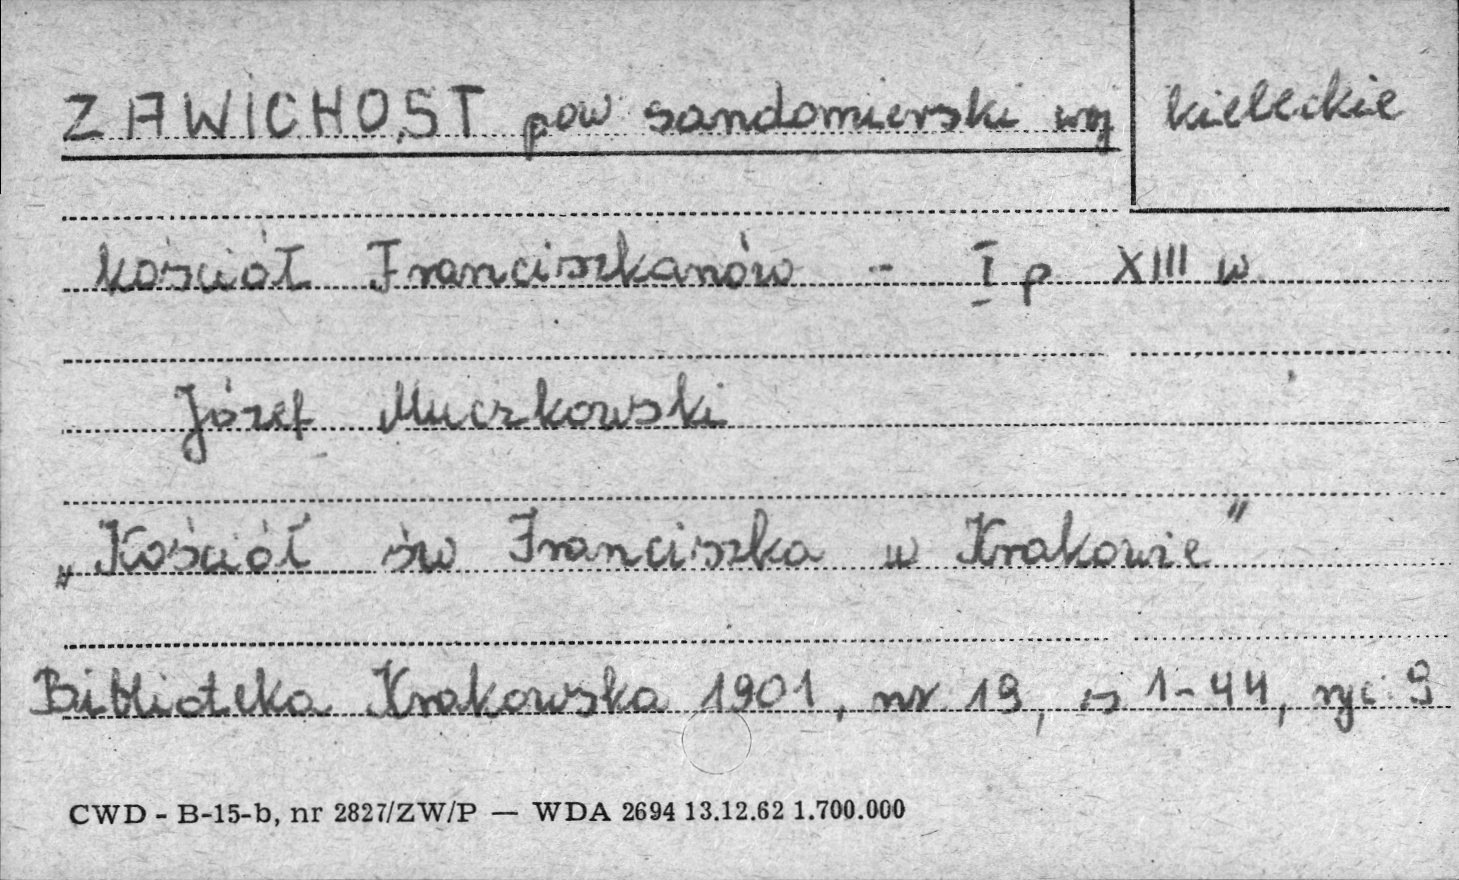 ZAWICHOST pow sandomierski woj kieleckie
kościół Franciszkanów - I p XIII w
Józef Muczkowski
„Kościół św Franciszka w Krakowie"
Biblioteka Krakowska 1901, nr 19, s 1-44, ryc 9
CWD - B-15-b, nr 2827/ZW/P — WDA 2694 13.12.62 1.700.000